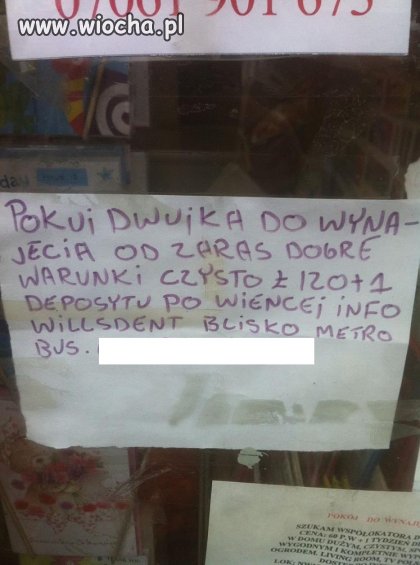 www.wiocha.pl
07061 901 675
POKUJ DWUJKA DO WYNA-
JECIA OD ZARAS DOBRE
WARUNKI CZYSTO Ł 120+1
DEPOSYTU PO WIENCEJ INFO
WILLSDENT BLISKO METRO
BUS.
POKÓJ DO WYNAJ
SZUKAM WSPÓŁLOKATORA
CENA: 60 P.W + 1 TYDZIEŃ D
W DOMU DUŻYM, CZYSTYM,
WYGODNYM I KOMPLETNIE WYPO
OGRODEM, LIVING ROOM, TV PO
DOSTĘ
LOK: NW